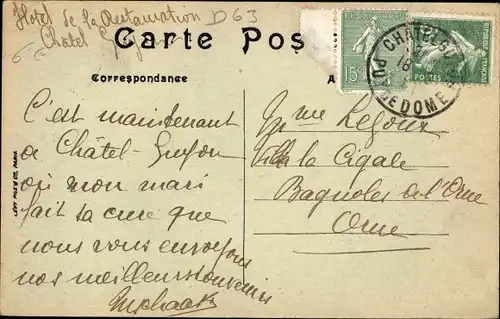 Hôtel de la Restauration D63
Châtel Guyon
Carte Pos
Correspondance
A
15c
POSTES
CHATEL GU
18
PUY DE DOME
C'est maintenant
à Châtel-Guyon
où mon mari
fait sa cure que
nous vous envoyons
nos meilleurs souvenirs
Mme Legoux
Villa la Cigale
Bagnoles de l'Orne
Orne